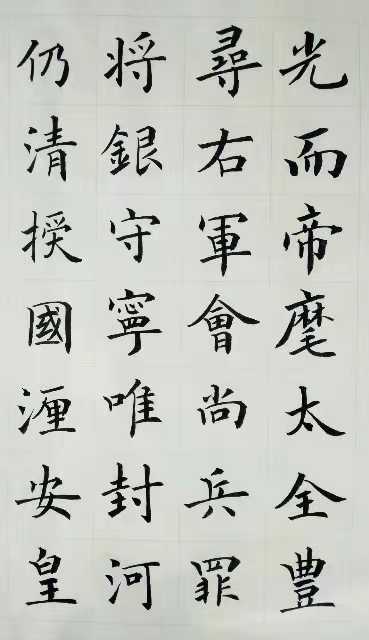 光而帝麾太全豊
尋右軍會尚兵罪
将銀守寧唯封河
仍清授國湮安皇